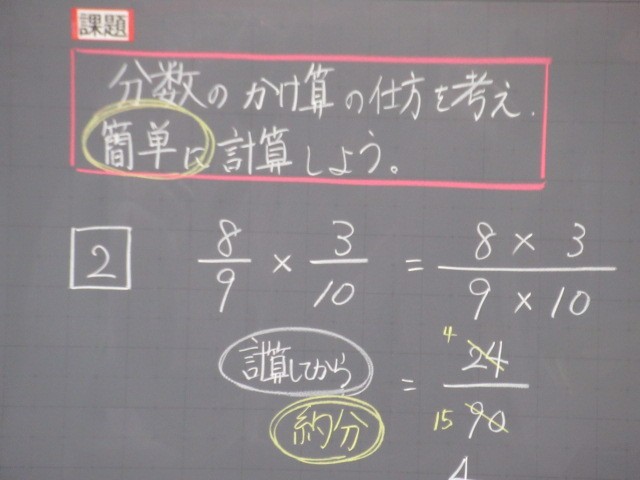 課題
分数のかけ算の仕方を考え、
簡単に計算しよう。
2 8/9 × 3/10 = 8 × 3 / 9 × 10
計算してから = 24/90
約分
4
15
4